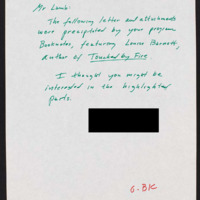 Mr Lamb:
The following letter and attachments
were precipitated by your program
Booknotes, featuring Louise Barnett,
author of Touched by Fire
I thought you might be
interested in the highlighted
parts.
G. BK